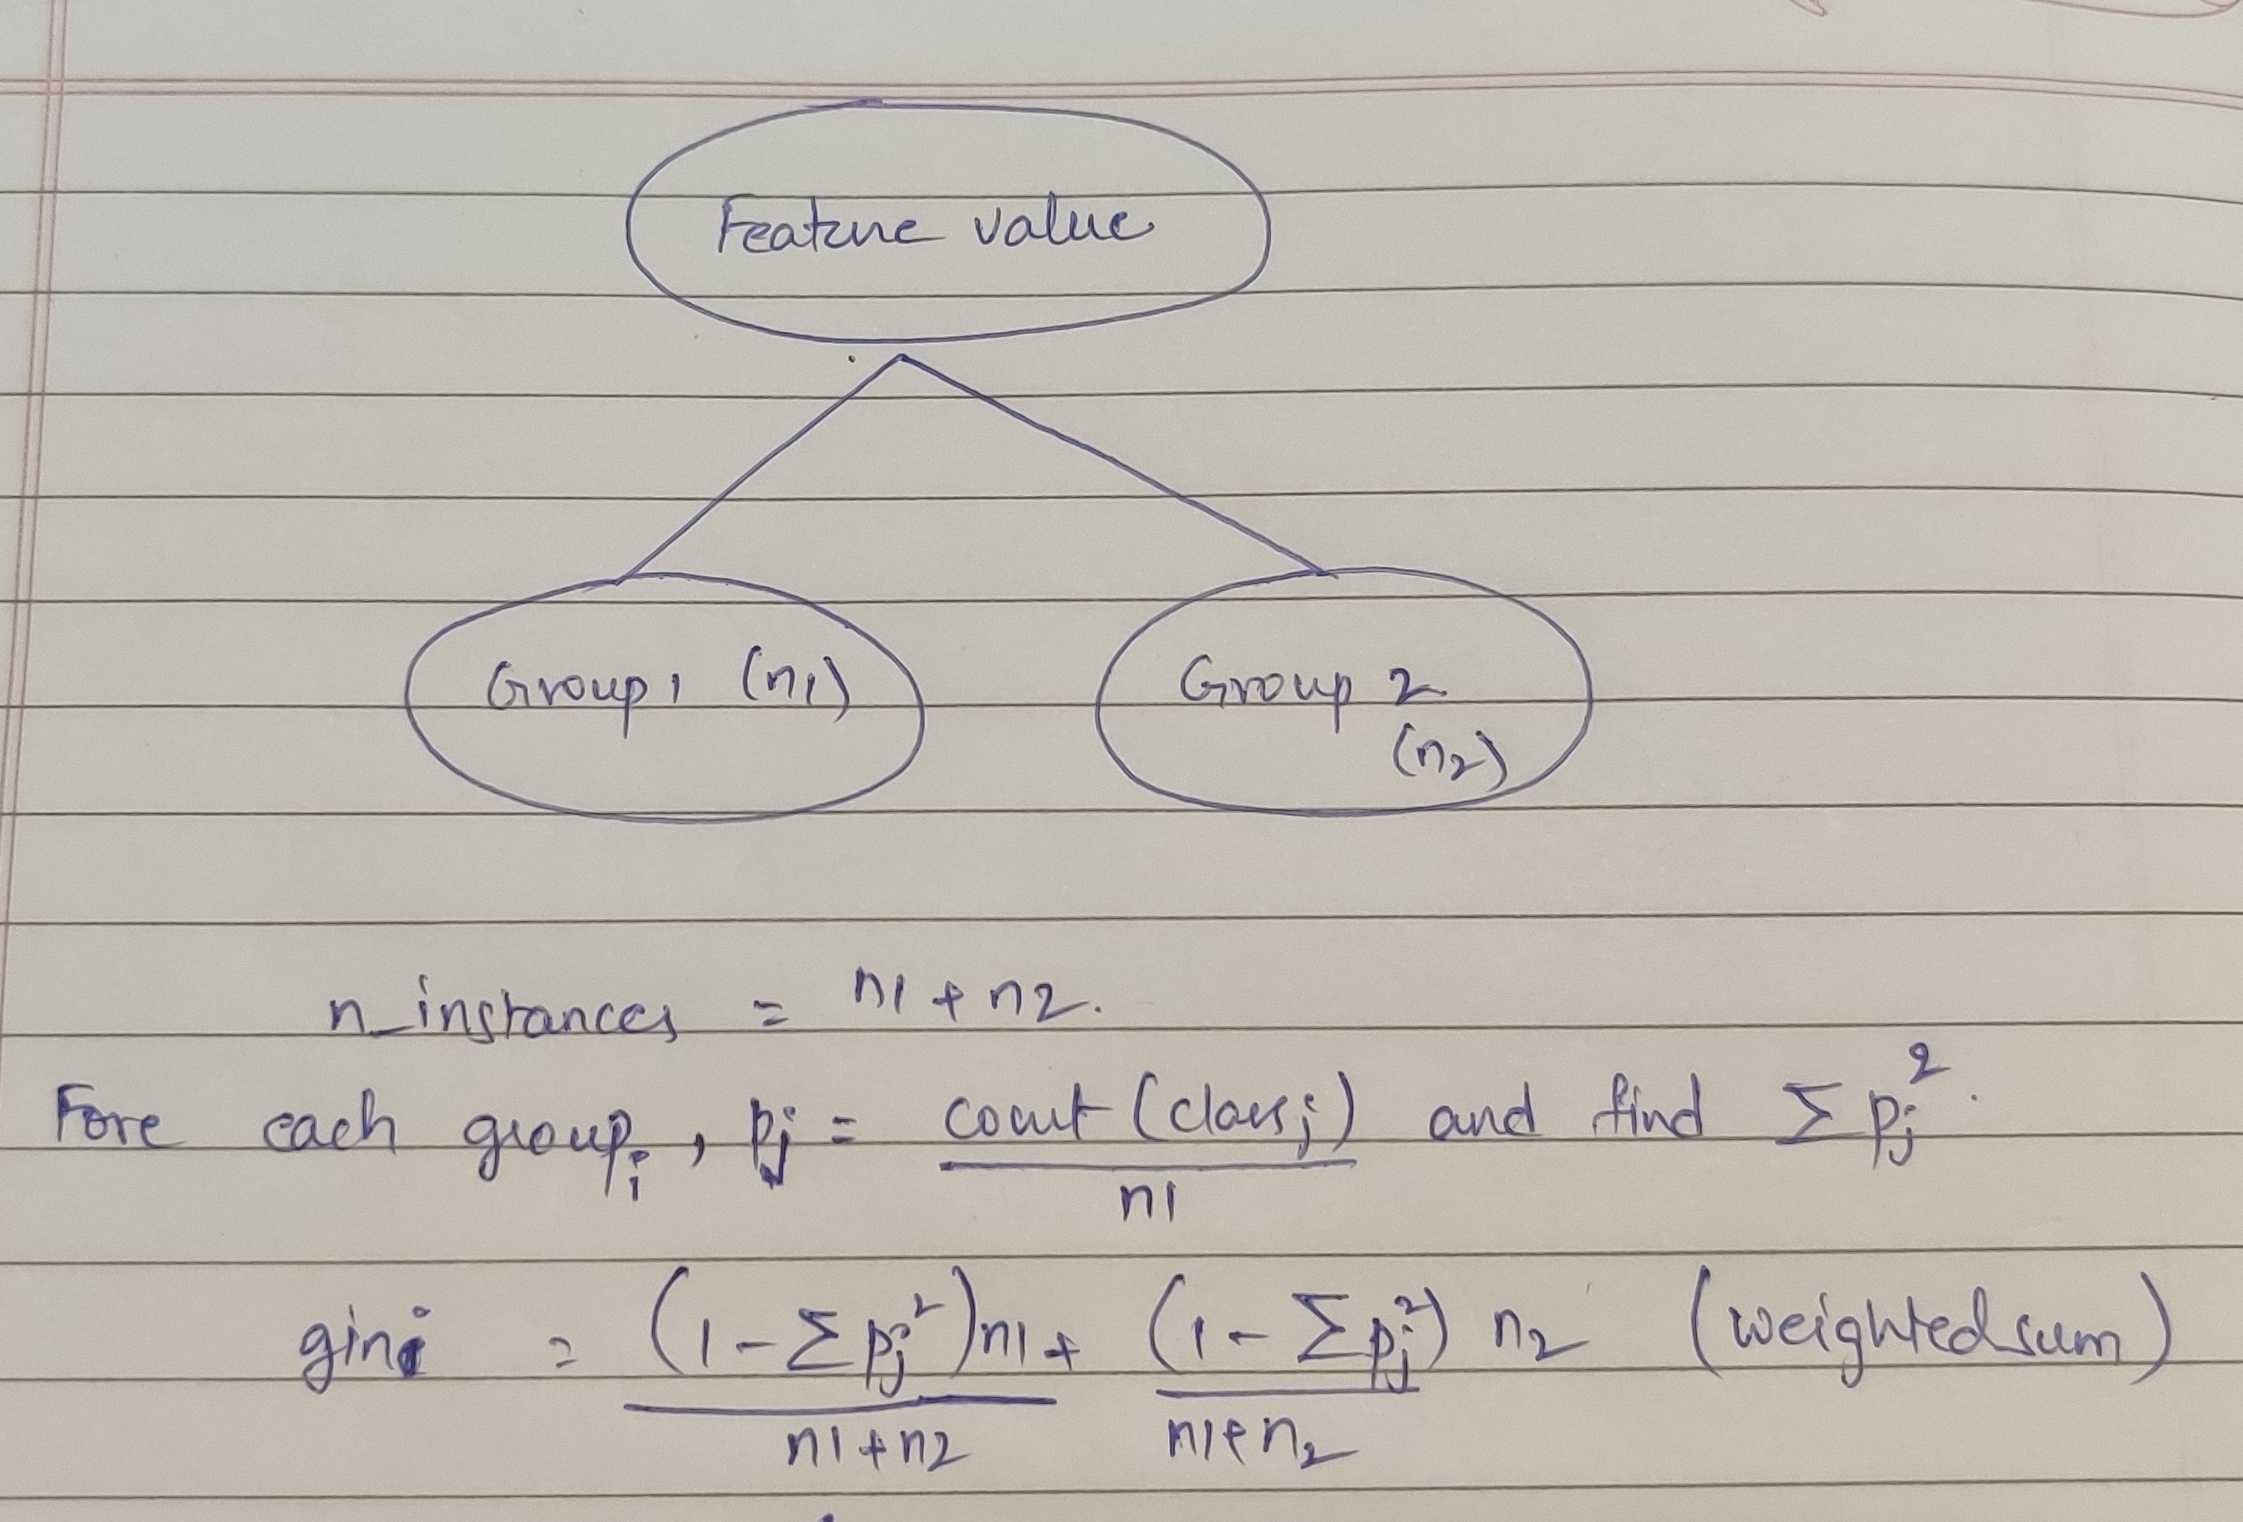 Feature value
Group 1 (n1)
Group 2
(n2)
n_instances = n1 + n2.
Fore each group i, pj = count (class j) / n1 and find Σ pj².
gini = (1 - Σ pj²) n1 / n1 + n2 + (1 - Σ pj²) n2 / n1 + n2 (weighted sum)